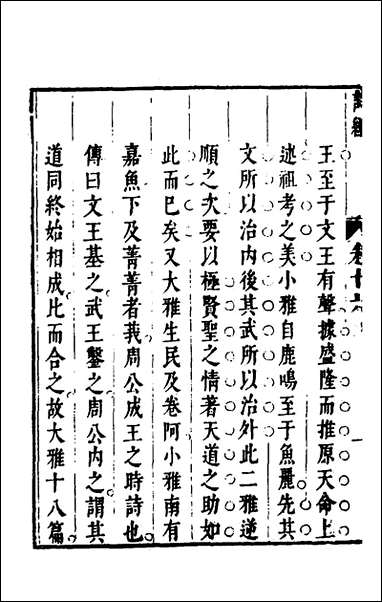 王至于文王有聲據盛隆而推原天命上
述祖考之美小雅自鹿鳴至于魚麗先其
文所以治內後其武所以治外此二雅逆
順之次要以極賢聖之情著天道之助如
此而已矣又大雅生民及卷阿小雅南有
嘉魚下及菁菁者莪周公成王之時詩也
傳曰文王基之武王鑿之周公內之謂其
道同終始相成比而合之故大雅十八篇